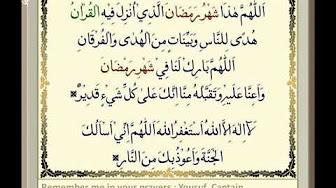 اَللّٰهُمَّ هٰذَا شَهْرُ رَمَضَانَ الَّذِي أُنْزِلَ فِيهِ الْقُرْآنُ
هُدًى لِلنَّاسِ وَبَيِّنَاتٍ مِنَ الْهُدَى وَالْفُرْقَانِ
اَللّٰهُمَّ بَارِكْ لَنَا فِي شَهْرِ رَمَضَانَ
وَأَعِنَّا عَلَيْهِ وَتَقَبَّلْهُ مِنَّا إِنَّكَ عَلَى كُلِّ شَيْءٍ قَدِيرٌ
لَا إِلٰهَ إِلَّا اللهُ أَسْتَغْفِرُ اللهَ اَللّٰهُمَّ إِنِّي أَسْأَلُكَ
الْجَنَّةَ وَأَعُوذُ بِكَ مِنَ النَّارِ
Remember me in your prayers : Yousuf, Captain